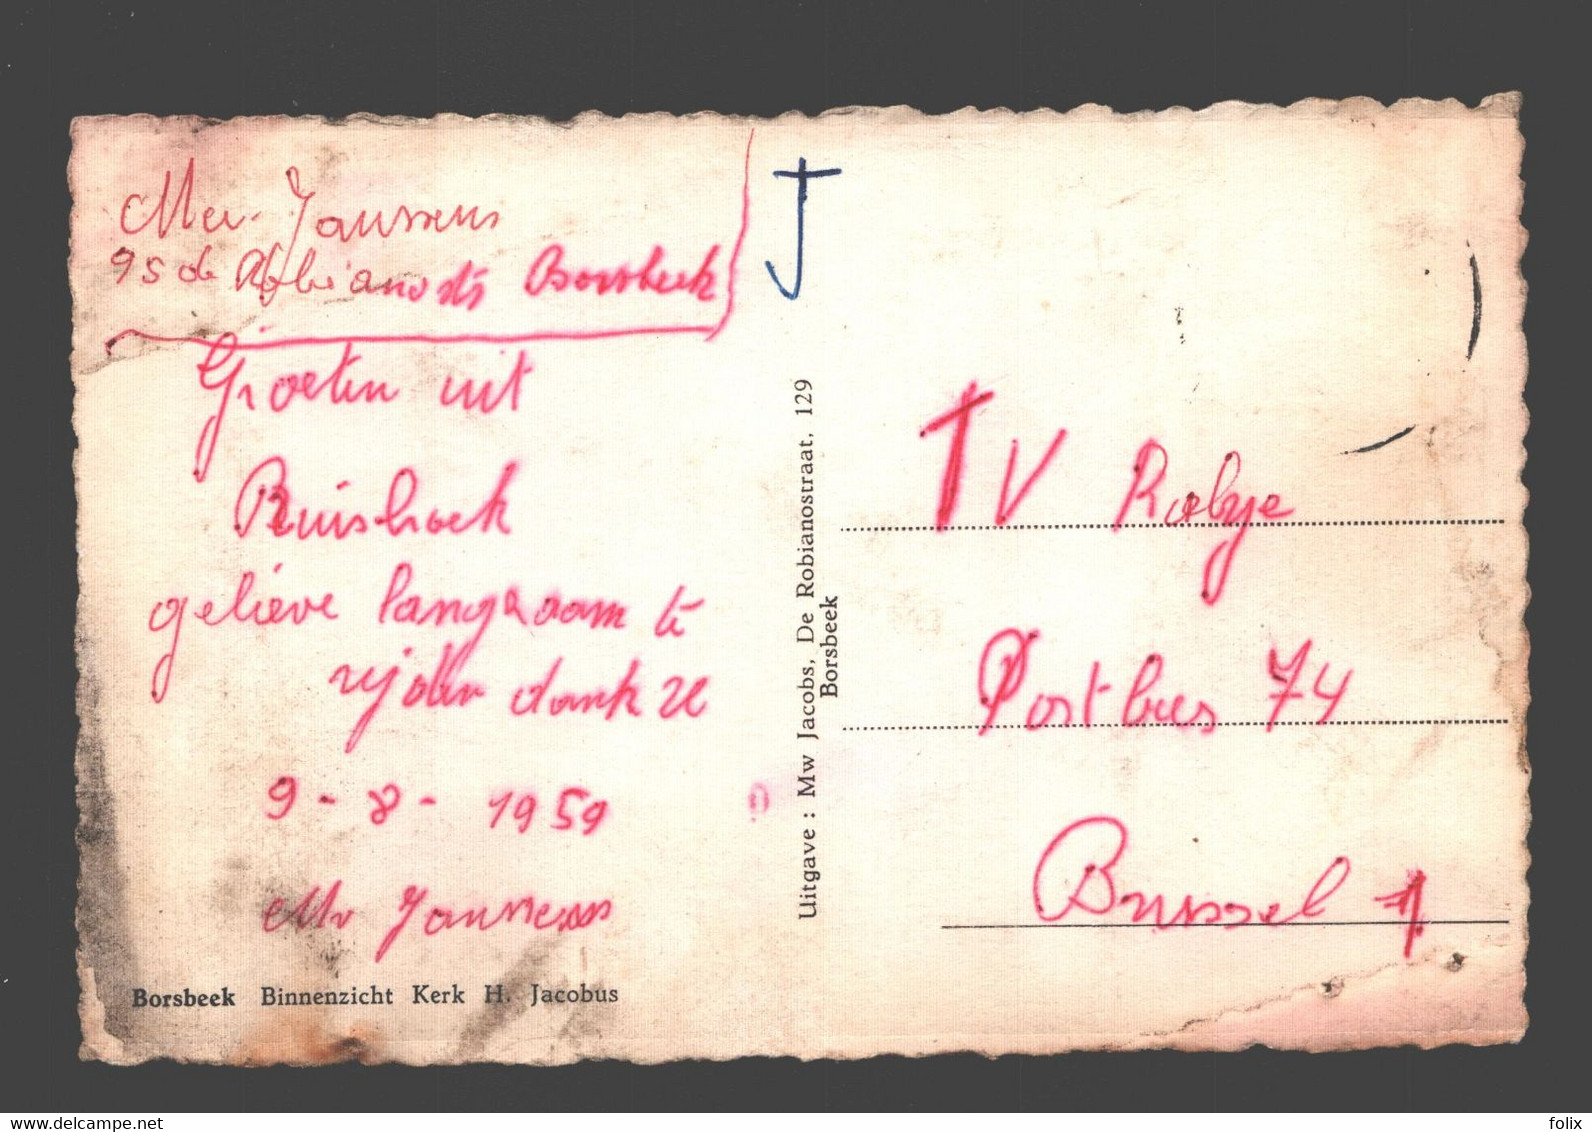 Mev. Janssens
95 de Robianostr Borsbeek
Groeten uit
Ruishoek
gelieve langzaam te
rijden dank ze
9-8-1959
Mv Janssens
Borsbeek Binnenzicht Kerk H. Jacobus
Uitgave : Mw Jacobs, De Robianostraat, 129
Borsbeek
J
TV Robye
Postbus 74
Brussel 1
www.delcampe.net
folix